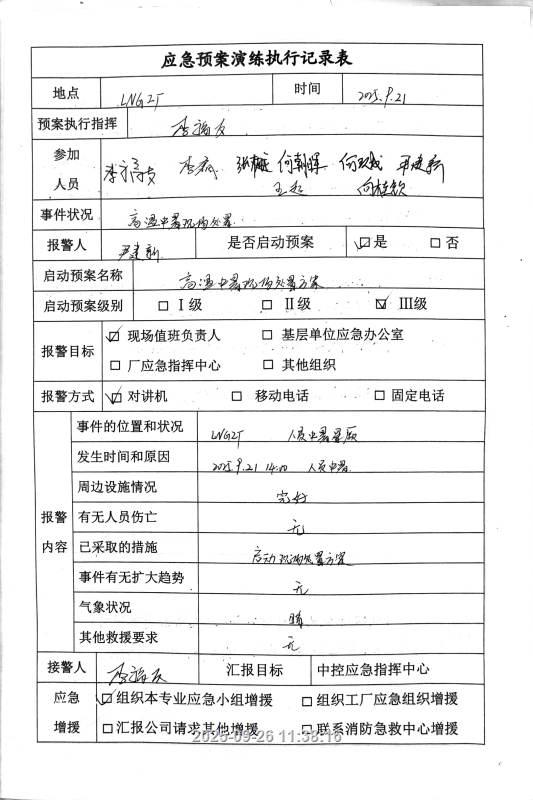 应急预案演练执行记录表
地点 LNG2T 时间 2025.9.21
预案执行指挥 李福友
参加人员 李福友 李斌 何朝晖
王起
事件状况 高温中暑现场处置
报警人 尹建新 是否启动预案 ☑是 □否
启动预案名称 高温中暑现场处置方案
启动预案级别 □ I级 □ II级 ☑ III级
报警目标 ☑ 现场值班负责人 □ 基层单位应急办公室
□ 厂应急指挥中心 □ 其他组织
报警方式 ☑ 对讲机 □ 移动电话 □ 固定电话
报警内容 事件的位置和状况 LNG2T 人员中暑晕厥
发生时间和原因 2025.9.21 14:00 人员中暑
周边设施情况 完好
有无人员伤亡 无
已采取的措施 启动现场处置方案
事件有无扩大趋势 无
气象状况 晴
其他救援要求 无
接警人 李福友 汇报目标 中控应急指挥中心
应急增援 ☑组织本专业应急小组增援 □组织工厂应急组织增援
□汇报公司请求其他增援 □联系消防急救中心增援
2025-09-26 11:38:16